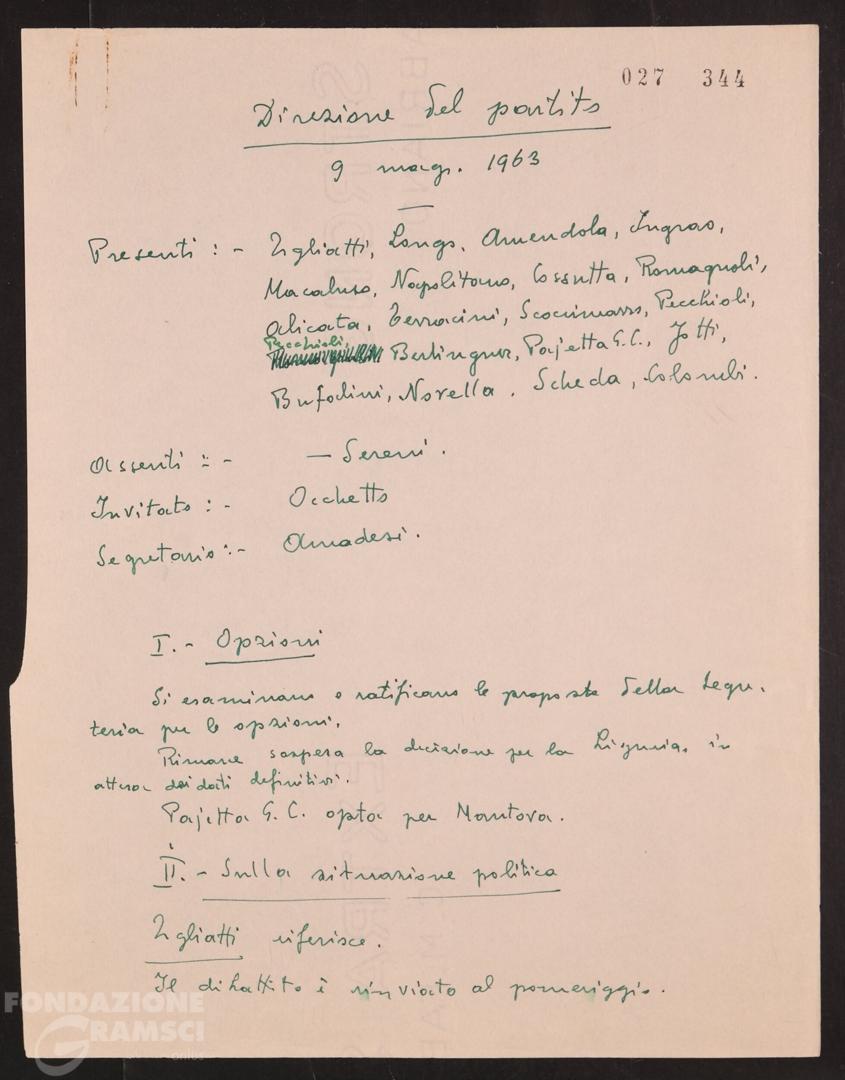 027 344
Direzione del partito
9 mag. 1963
Presenti : - Togliatti, Longo, Amendola, Ingrao,
Macaluso, Napolitano, Cossutta, Romagnoli,
Alicata, Terracini, Scoccimarro, Pecchioli,
Pecchioli,
Berlinguer, Pajetta G.C., Jotti,
Bufalini, Novella, Scheda, Colombi.
Assenti : - — Sereni.
Invitato : - Occhetto
Segretario : - Amadesi.
I. - Opzioni
Si esaminano e ratificano le proposte della segre-
teria per le opzioni.
Rimane sospesa la decisione per la Liguria, in
attesa dei dati definitivi.
Pajetta G. C. opta per Mantova.
II. - Sulla situazione politica
Togliatti riferisce.
Il dibattito è rinviato al pomeriggio.
FONDAZIONE
GRAMSCI